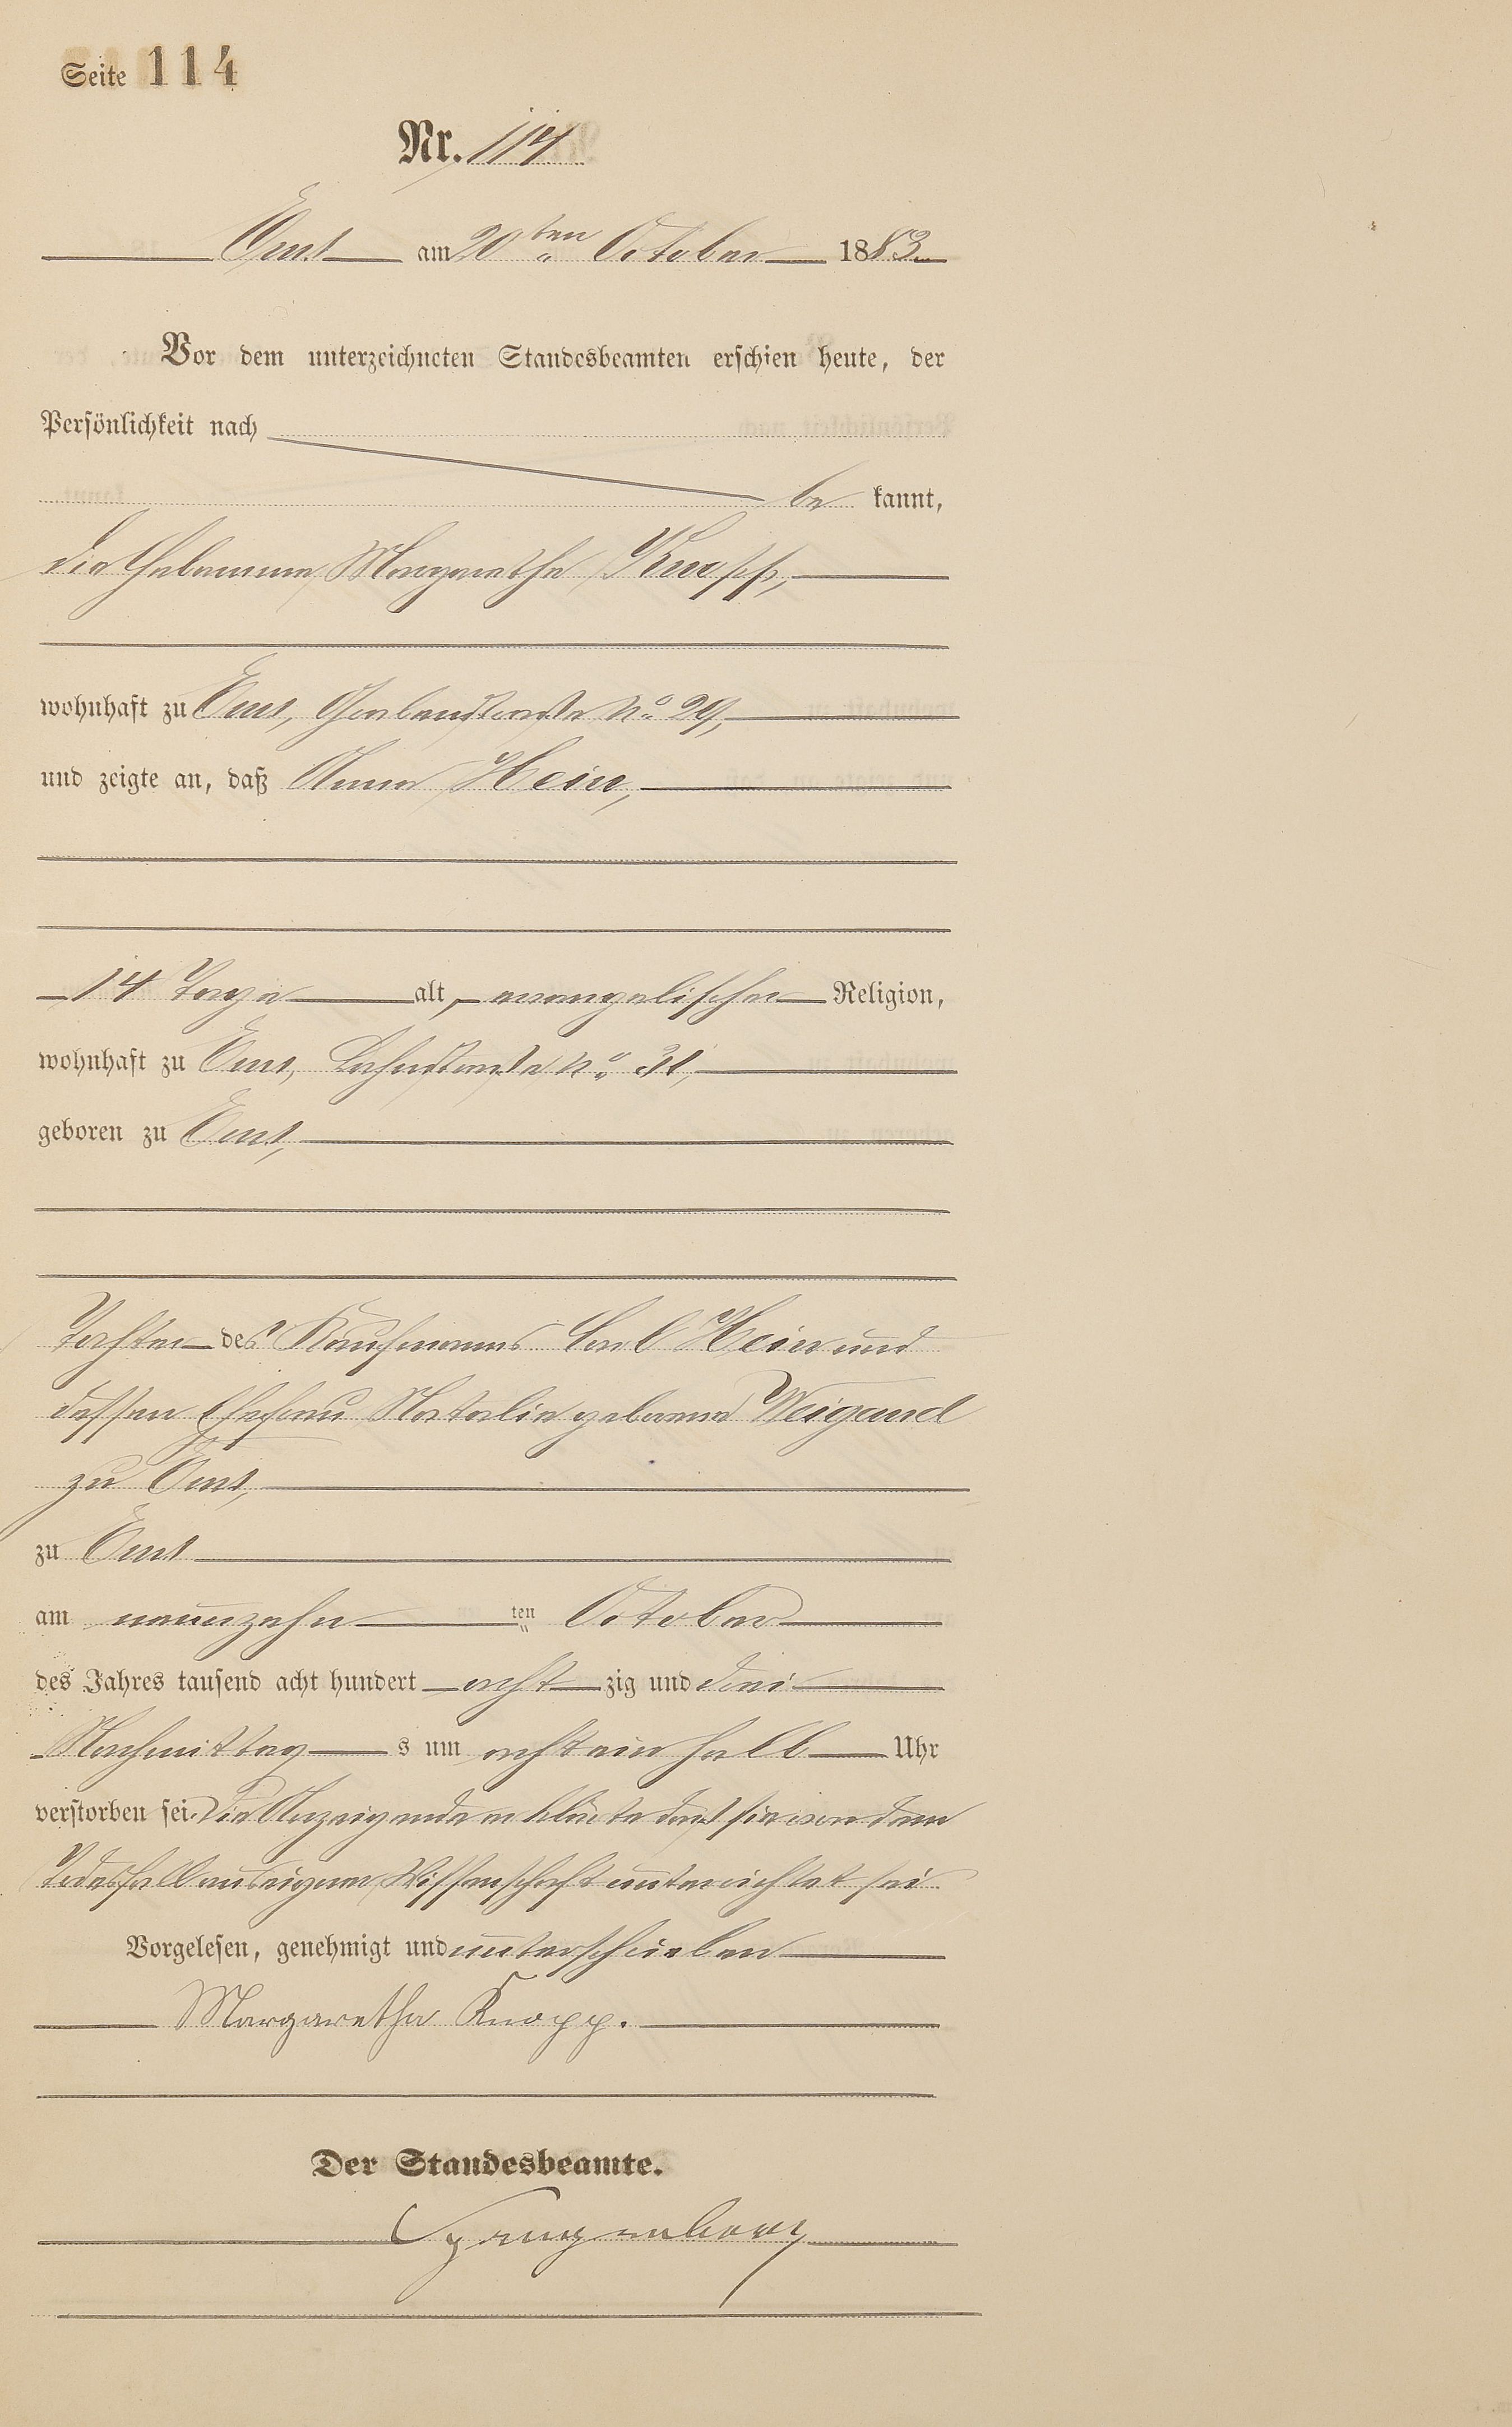 Seite 114
Nr. 114
Ems am 20ten October 1883
Vor dem unterzeichneten Standesbeamten erschien heute, der
Persönlichkeit nach
be kannt,
die Hebamme Margarethe Knopp,
wohnhaft zu Ems, No. 29,
und zeigte an, daß Anna Hein,
14 Tage alt, evangelischer Religion,
wohnhaft zu Ems, Lahnstraße No. 31,
geboren zu Ems,
Tochter des Kaufmanns Carl Hein und
dessen Ehefrau Natalie geborene Weigand
zu Ems,
zu Ems
am neunzehn ten October
des Jahres tausend acht hundert acht zig und drei
Nachmittag s um achteinhalb Uhr
verstorben sei. Die Anzeigende erklärte daß sie von dem
Todesfall aus eigener Wissenschaft unterrichtet sei.
Vorgelesen, genehmigt und unterschrieben
Margaretha Knopp.
Der Standesbeamte.
Spangenberg